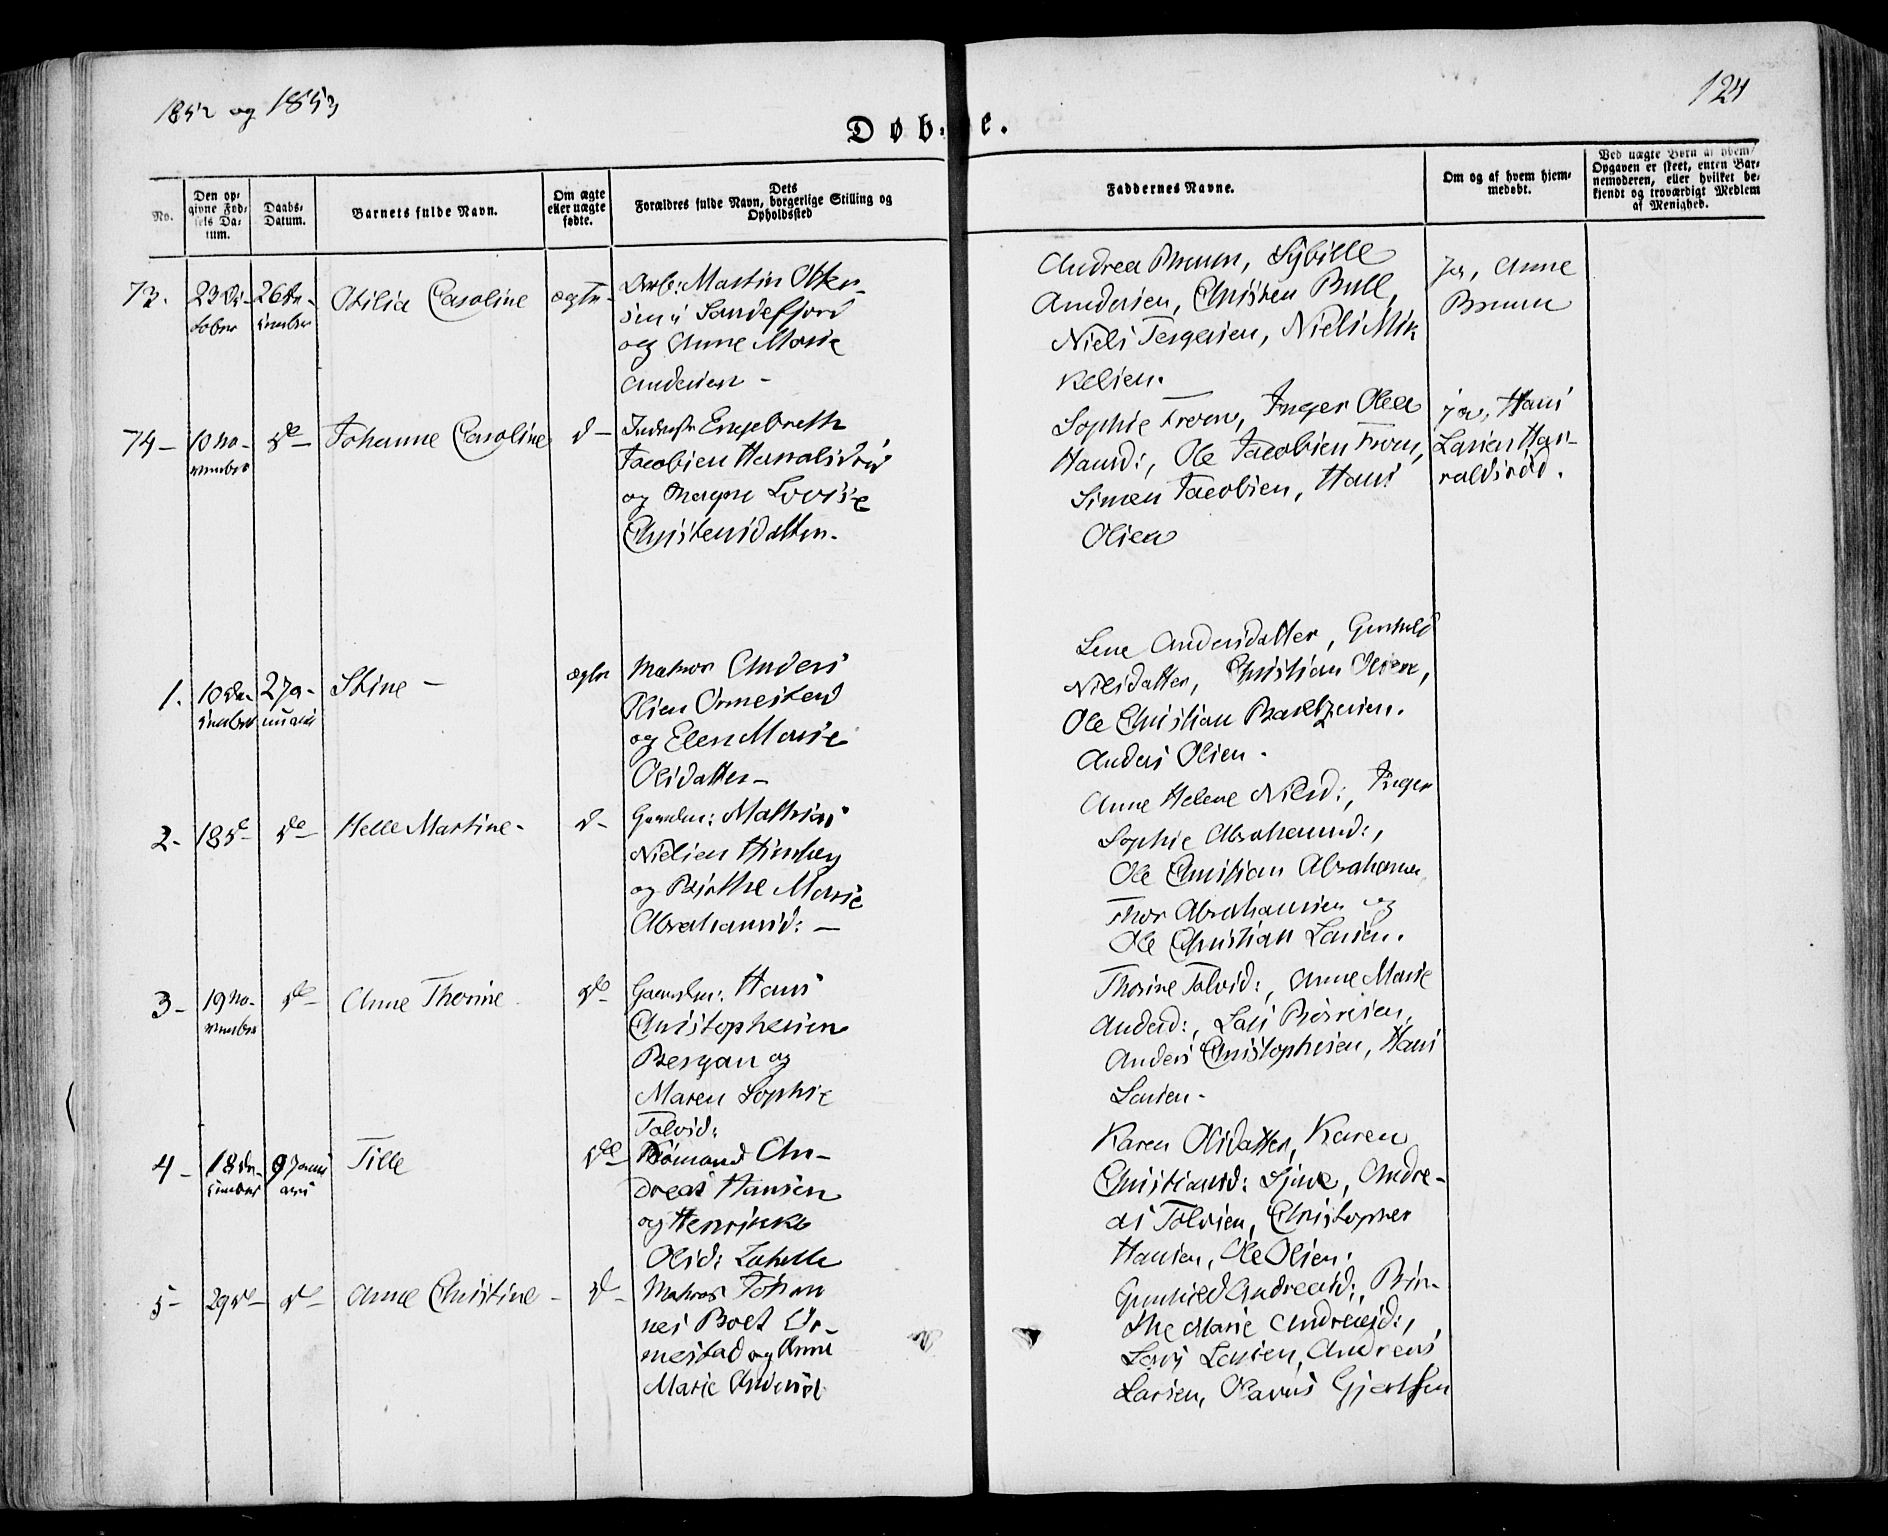 1852 og 1853
124
Døb- e.
No.
Den op-
givne Fød-
sels Da-
tum.
Daabs-
Datum.
Barnets fulde Navn.
Om ægte
eller uægte
fødte.
Dets
Forældres fulde Navn, borgerlige Stilling og
Opholdssted
Faddernes Navne.
Om og af hvem hjem-
medøbt.
Ved uægte Børn af hvem
Opgaven er skeet, enten Bar-
nemoderen, eller hvilket be-
kjendt og troværdigt Medlem
af Menighed.
73.
23 Oc-
tober
26 De-
cember
Otilia Caroline
ægte
Arb: Martin Otter-
sen i Sandefjord
og Anne Marie
Andersen -
Andrea Bruun, Sybille
Andersen, Christen Bull,
Niels Tergersen, Niels Mik
kelsen.
Ja, Anne
Bruun
74 -
10 No-
vember
de
Johanne Caroline
d -
Inderst Engebreth
Jacobsen Haraldsrød
og Maren Lovise
Christensdatter.
Sophie Froen, Inger Olea
Hansd:, Ole Jacobsen Froen,
Simen Jacobsen, Hans
Olsen
ja, Hans
Larsen Har-
raldsrød.
1.
10 De-
cember
2 Ja-
nuari
Stine -
ægte
Matros Anders
Olsen Ormestad
og Elen Marie
Olsdatter -
Lene Andersdatter, Gunhild
Nilsdatter, Christian Olsen,
Ole Christian Baltzersen.
Anders Olsen -
2 -
18 de
de
Helle Martine -
d -
Gaardm: Mathias
Nielsen
og Birthe Marie
Abrahamsd: -
Anne Helene Nilsd:, Inger
Sophie Abrahamsd:,
Ole Christian Abrahamsen
Thor Abrahamsen og
Ole Christian Larsen.
3 -
19 No-
vember
de
Anne Thorine
de
Gaardm: Hans
Christophersen
Bergan og
Maren Sophie
Tolvsd:
Thorine Tolvsd:, Anne Marie
Andersd:, Lars Børresen,
Anders Christophersen, Hans
Larsen -
4 -
18 De-
cember
9 Janu
ari
Tille
de
Sømand An-
dreas Hansen
og Henrikke
Olsd:
Karen Olsdatter, Karen
Christiansd:, Andre-
as Tolvsen, Christopher
Hansen, Ole Olsen.
5 -
29 de
de
Anne Christine -
d -
Matros Johan
nes Boet Or-
mestad og Anne
Marie Andersd
Gunhild Andreasd:, Bir-
the Marie Andreasd:,
Lars Larsen, Andreas
Larsen, Olavus Gjertsen